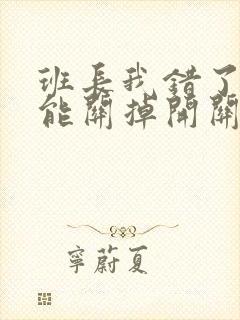 班長我錯了
能關掉開關
寧蔚夏